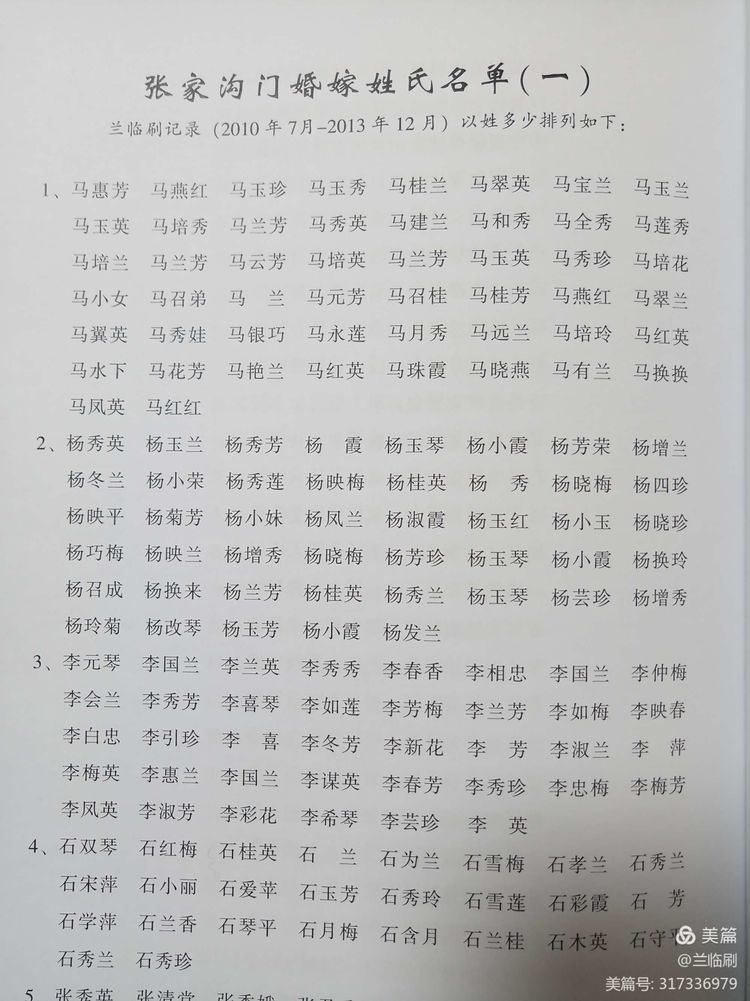 张家沟门婚嫁姓氏名单(一)
兰临刷记录（2010年7月-2013年12月）以姓多少排列如下：
1、马惠芳 马燕红 马玉珍 马玉秀 马桂兰 马翠英 马宝兰 马玉兰
马玉英 马培秀 马兰芳 马秀英 马建兰 马和秀 马全秀 马莲秀
马培兰 马兰芳 马云芳 马培英 马兰芳 马玉英 马秀珍 马培花
马小女 马召弟 马 兰 马元芳 马召桂 马桂芳 马燕红 马翠兰
马翼英 马秀娃 马银巧 马永莲 马月秀 马远兰 马培玲 马红英
马水下 马花芳 马艳兰 马红英 马珠霞 马晓燕 马有兰 马换换
马凤英 马红红
2、杨秀英 杨玉兰 杨秀芳 杨 霞 杨玉琴 杨小霞 杨芳荣 杨增兰
杨冬兰 杨小荣 杨秀莲 杨映梅 杨桂英 杨 秀 杨晓梅 杨四珍
杨映平 杨菊芳 杨小妹 杨凤兰 杨淑霞 杨玉红 杨小玉 杨晓珍
杨巧梅 杨映兰 杨增秀 杨晓梅 杨芳珍 杨玉琴 杨小霞 杨换玲
杨召成 杨换来 杨兰芳 杨桂英 杨秀兰 杨玉琴 杨芸珍 杨增秀
杨玲菊 杨改琴 杨玉芳 杨小霞 杨发兰
3、李元琴 李国兰 李兰英 李秀秀 李春香 李相忠 李国兰 李仲梅
李会兰 李秀芳 李喜琴 李如莲 李芳梅 李兰芳 李如梅 李映春
李白忠 李引珍 李 喜 李冬芳 李新花 李 芳 李淑兰 李 萍
李梅英 李惠兰 李国兰 李谋英 李春芳 李秀珍 李忠梅 李梅芳
李凤英 李淑芳 李彩花 李希琴 李芸珍 李 英
4、石双琴 石红梅 石桂英 石 兰 石为兰 石雪梅 石孝兰 石秀兰
石宋萍 石小丽 石爱苹 石玉芳 石秀玲 石雪莲 石彩霞 石 芳
石学萍 石兰香 石琴平 石月梅 石含月 石兰桂 石木英 石守平
石秀兰 石秀珍
5、张秀英 张清堂 张秀娥
美篇
@兰临刷
美篇号: 317336979